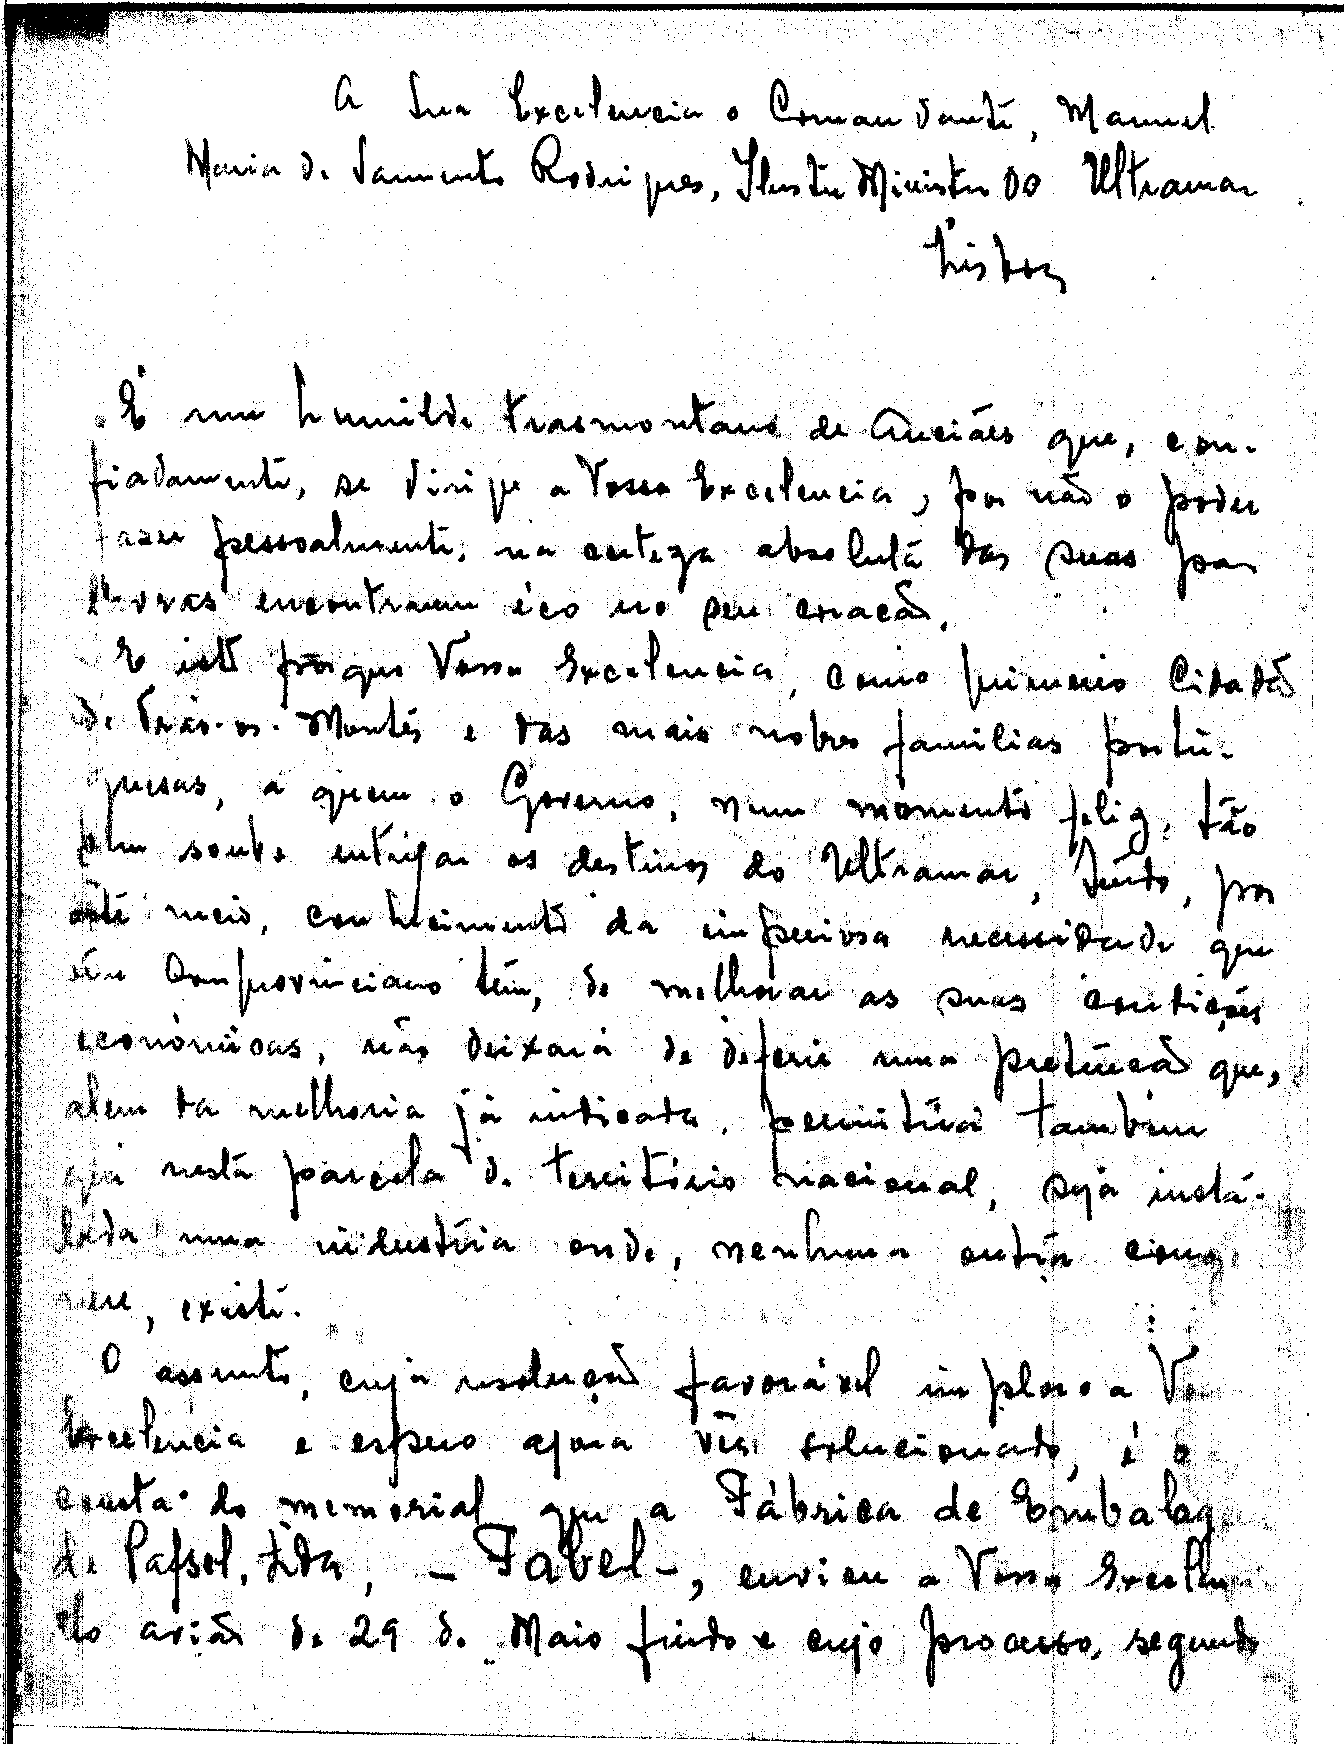 A Sua Excelencia o Comandante, Manuel
Maria de Sarmento Rodrigues, Ilustre Ministro do Ultramar
Lisboa
É um humilde trasmontano de Anciães que, con-
fiadamente, se dirige a Vossa Excelencia, por não o poder
fazer pessoalmente, na certeza absoluta das suas pa-
lavras encontrarem éco no seu coração.
E isto porque Vossa Excelencia, como primeiro Cidadão
de Trás-os-Montes e das mais nobres familias portu-
guesas, a quem o Governo, num momento feliz, tão
bem soube entregar os destinos do Ultramar, tendo, por
este meio, conhecimento da imperiosa necessidade que
seu Comprovinciano tem, de melhorar as suas condições
económicas, não deixará de deferir uma pretenção que,
alem da melhoria já indicada, permitirá tambem
que nesta parcela de território nacional, seja insta-
lada uma industria onde, nenhuma outra congé-
nere, existe.
O assunto, cuja resolução favorável imploro a
Excelencia e espero agora ver solucionado, é o
consta do memorial que a Fábrica de
de Papel, Lda, - Fabel -, enviou a Vossa
pelo avião de 29 de Maio findo e cujo processo, segundo